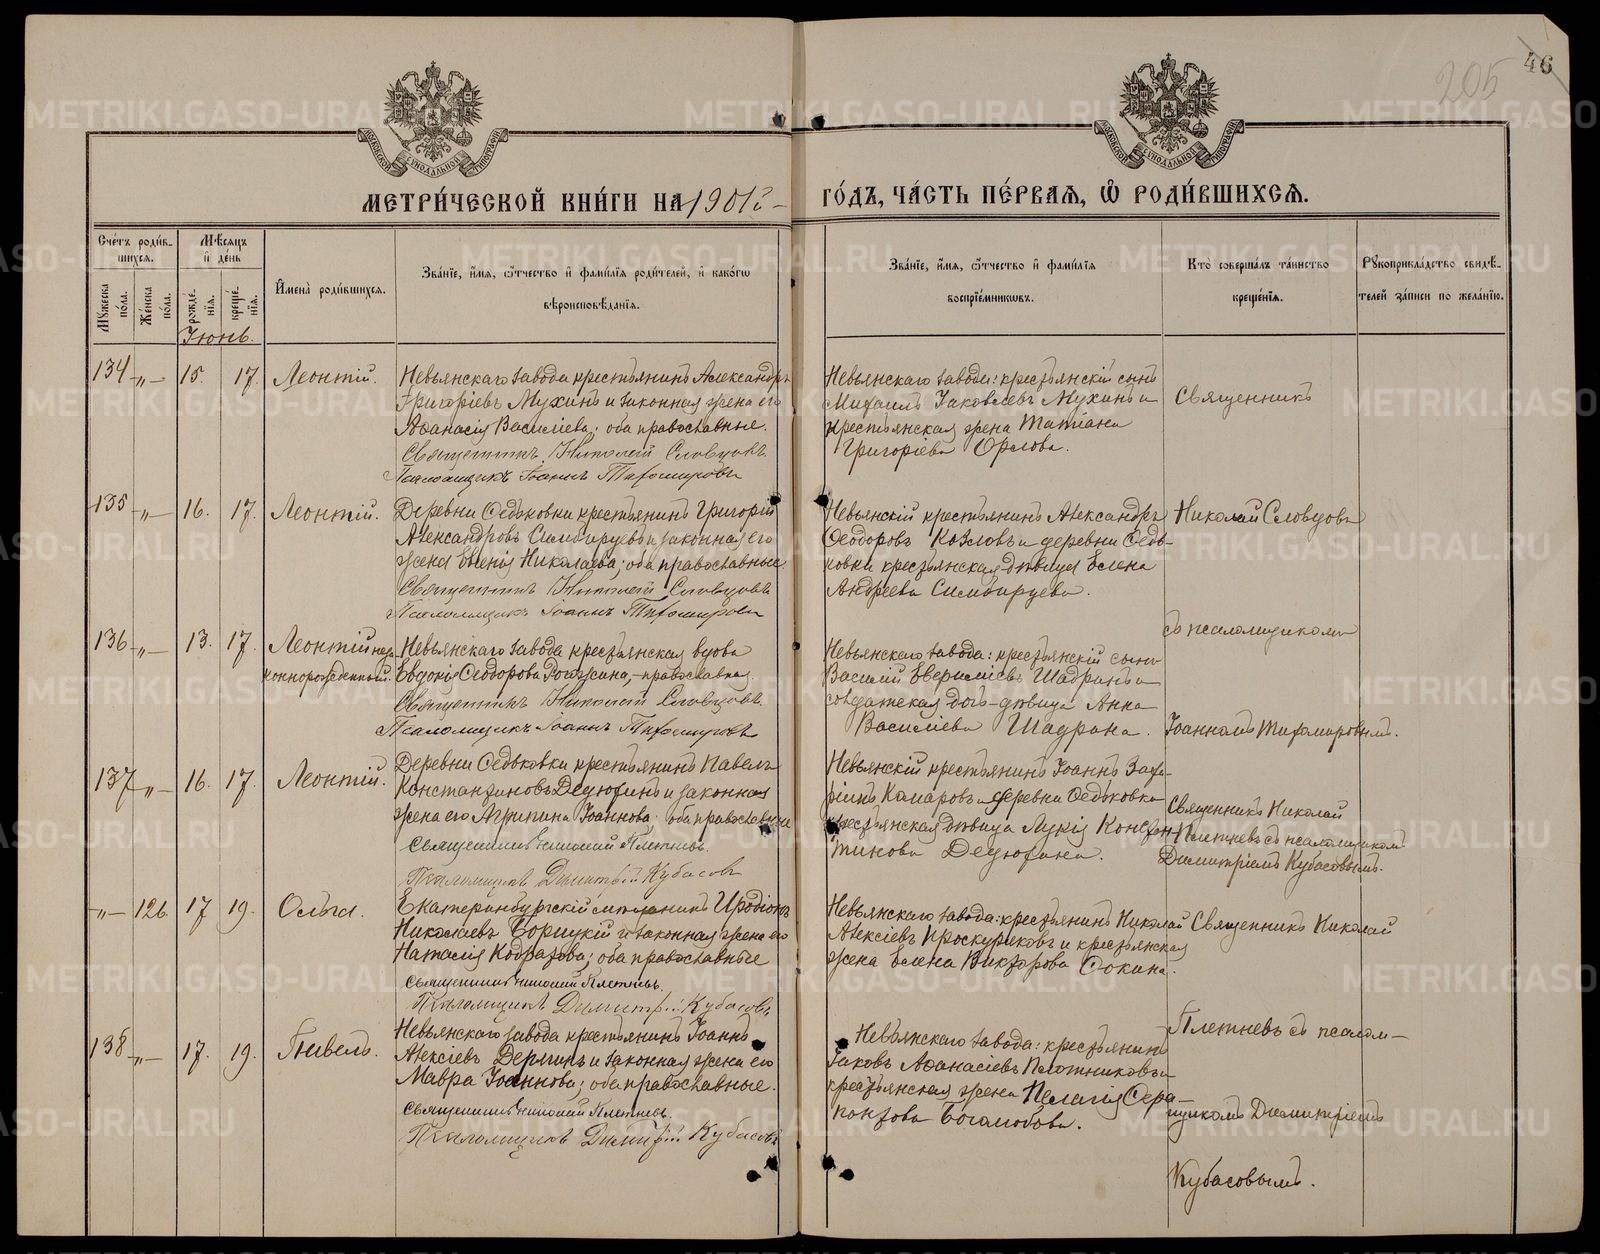 46
205
МОСКОВСКОЙ СѴНОДАЛЬНОЙ ТИПОГРАФІИ
МОСКОВСКОЙ СѴНОДАЛЬНОЙ ТИПОГРАФІИ
МЕТРИ́ЧЕСКОЙ КНИ́ГИ НА 1901й
ГО́ДЪ, ЧА́СТЬ ПЕ́РВАЯ, Ѽ РОДИ́ВШИХСЯ.
Сче́тъ роди́в-
шихся.
Мꙋжеска по́ла.
Же́нска по́ла.
Мѣ́сяцъ
и҆ де́нь
рожде́-
нїя.
креще́-
нїя.
И҆мена̀ роди́вшихся.
Зва́нїе, и҆́мя, ѻ҆́тчество и҆ фами́лїѧ роди́телей, и҆ како́гѡ
вѣроисповѣ́данїя.
Зва́нїе, и҆́мя, ѻ҆́тчество и҆ фами́лїѧ
воспрїе́мникѡвъ.
Кто̀ соверша́лъ та́инство
креще́нїя.
Рꙋкоприкла́дство свидѣ́-
телей за́писи по жела́нїю.
Іюнь.
134 „ 15. 17. Леонтій.
Невьянскаго завода крестьянинъ Александръ
Григоріевъ Мухинъ и законная жена его
Аѳанасія Василіева; оба православные.
Священникъ Николай Словцовъ
Псаломщикъ Іоаннъ Тихомировъ
Невьянскаго завода: крестьянскій сынъ
Михаилъ Іаковлевъ Мухинъ и
крестьянская жена Татіана
Григоріева Орлова.
Священникъ
135 „ 16. 17. Леонтій.
Деревни Ѳедьковки крестьянинъ Григорій
Александровъ Симбирцевъ и законная его
жена Евгенія Николаева; оба православные
Священникъ Николай Словцовъ
Псаломщикъ Іоаннъ Тихомировъ
Невьянскій крестьянинъ Александръ
Ѳеодоровъ Козловъ и деревни Ѳедь-
ковки крестьянская дѣвица Елена
Андреева Симбирцева.
Николай Словцовъ
съ псаломщикомъ
136 „ 13. 17. Леонтій неза-
коннорожденный.
Невьянскаго завода крестьянская вдова
Евдокія Ѳеодорова, православная.
Священникъ Николай Словцовъ
Псаломщикъ Іоаннъ Тихомировъ
Невьянскаго завода: крестьянскій сынъ
Василій Шадринъ и
солдатская дочь-дѣвица Анна
Василіева Шадрина.
Іоанномъ Тихомировымъ.
137 „ 16. 17. Леонтій.
Деревни Ѳедьковки крестьянинъ Павелъ
Константиновъ Дедюхинъ и законная
жена его Агрипина Іоаннова; оба православные
Священникъ Николай Плетневъ.
Псаломщикъ Димитрій Кубасовъ
Невьянскій крестьянинъ Іоаннъ Заха-
ріинъ Комаровъ и деревни Ѳедьковки
крестьянская дѣвица Лукія Констан-
тинова Дедюхина.
Священникъ Николай
Плетневъ съ псаломщикомъ
Димитріемъ Кубасовымъ.
„ 126. 17 19. Ольга.
Екатеринбургскій мѣщанинъ Иродіонъ
Николаевъ Борицкій и законная жена его
Наталія Кодратова; оба православные
Священникъ Николай Плетневъ.
Псаломщикъ Димитрій Кубасовъ
Невьянскаго завода: крестьянинъ Николай
Алексіевъ Проскуряковъ и крестьянская
жена Елена Викторова Сокина.
Священникъ Николай
Плетневъ съ псалом-
138 „ 17. 19. Павелъ.
Невьянскаго завода крестьянинъ Іоаннъ
Алексіевъ и законная жена его
Мавра Іоаннова; оба православные.
Священникъ Николай Плетневъ.
Псаломщикъ Димитрій Кубасовъ
Невьянскаго завода: крестьянинъ
Іаковъ Аѳанасіевъ Плотниковъ и
крестьянская жена Пелагія Сера-
піонова Боголюбова.
щикомъ Димитріемъ
Кубасовымъ.
METRIKI.GASO-URAL.RU